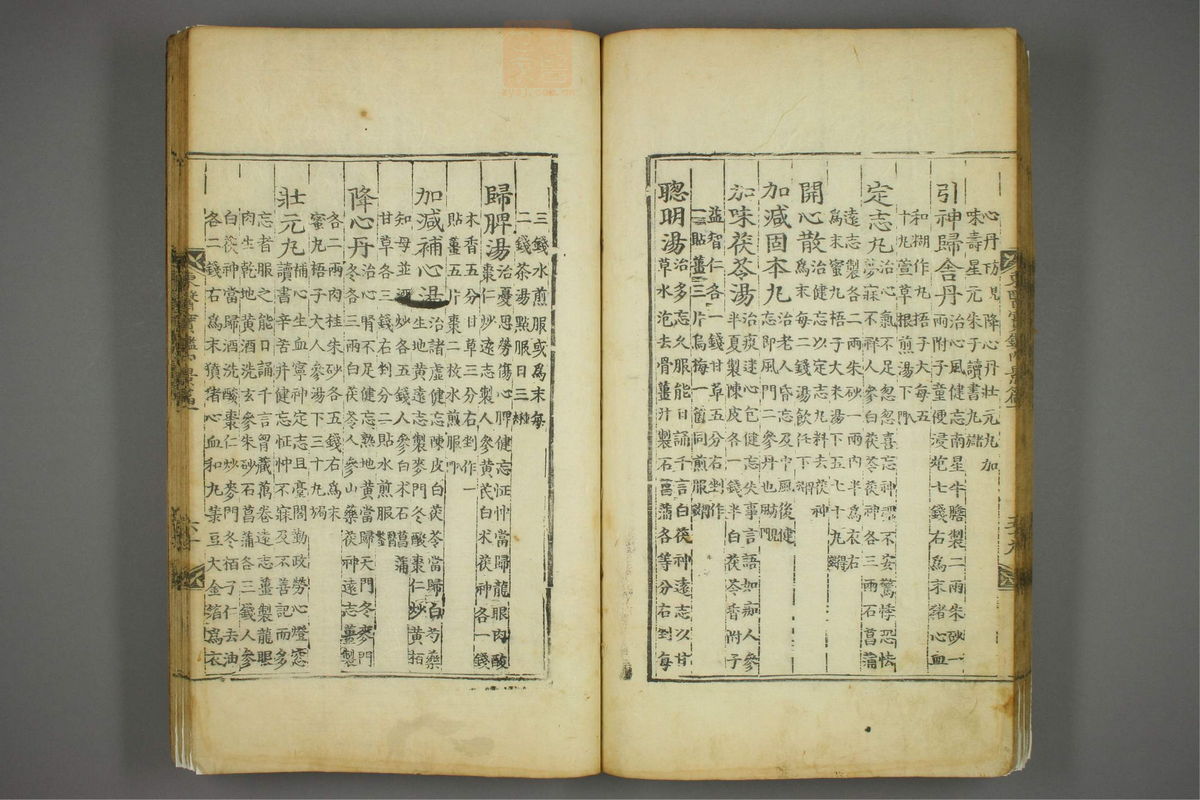 心丹方見降心丹壯元丸加
味壽星元朱子讀書丸
引神歸舍丹治心風健忘南星牛膽製二兩朱砂一
兩附子童便浸炮七錢右爲末猪心血
和糊作丸梧子大每五
十丸萱草根煎湯下
定志丸治心氣不足忽忽喜忘神魂不安驚悸恐怯
夢寐不祥人參白茯苓茯神各三兩石菖蒲
遠志製各二兩朱砂一兩內半爲衣右
爲末蜜丸梧子大米湯下五七十丸
開心散治健忘以定志丸料去茯神
爲末每二錢湯飮任下
加減固本丸治老人昏忘及中風後健
忘即風門二參丹也
加味茯苓湯治痰迷心包健忘失事言語如痴人參
半夏製陳皮各一錢半白茯苓香附子
益智仁各一錢甘草五分右剉作
一貼薑三片烏梅一箇同煎服
聰明湯治多忘久服能日誦千言白茯神遠志以甘
草水泡去骨薑汁製石菖蒲各等分右剉每
三錢水煎服或爲末每
二錢茶湯點服日三
歸脾湯治憂思勞傷心脾健忘怔忡當歸龍眼肉酸
棗仁炒遠志製人參黃芪白朮茯神各一錢
木香五分甘草三分右剉作一
貼薑五片棗二枚水煎服
加減補心湯治諸虛健忘陳皮白茯苓當歸白芍藥
生地黃遠志製麥門冬酸棗仁炒黃栢
知母並酒炒各五錢人參白朮石菖蒲
甘草各三錢右剉分二貼水煎服
降心丹治心腎不足健忘熟地黃當歸天門冬麥門
冬各三兩白茯苓人參山藥茯神遠志薑製
各二兩肉桂朱砂各五錢右爲末
蜜丸梧子大人參湯下三十丸
壯元丸補心生血寧神定志且臺閣勤政勞心燈窓
讀書辛苦幷健忘怔忡不寐及不善記而多
忘者服之能日誦千言胷藏萬卷遠志薑製龍眼
肉生乾地黃酒洗玄參朱砂石菖蒲各三錢人參
白茯神當歸酒洗酸棗仁炒麥門冬栢子仁去油
各二錢右爲末獖猪心血和丸菉豆大金箔爲衣